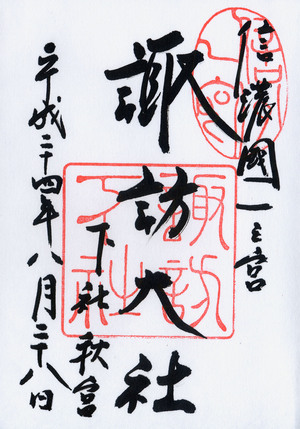 信濃國一之宮
諏訪大社
下社秋宮
平成二十四年八月二十八日